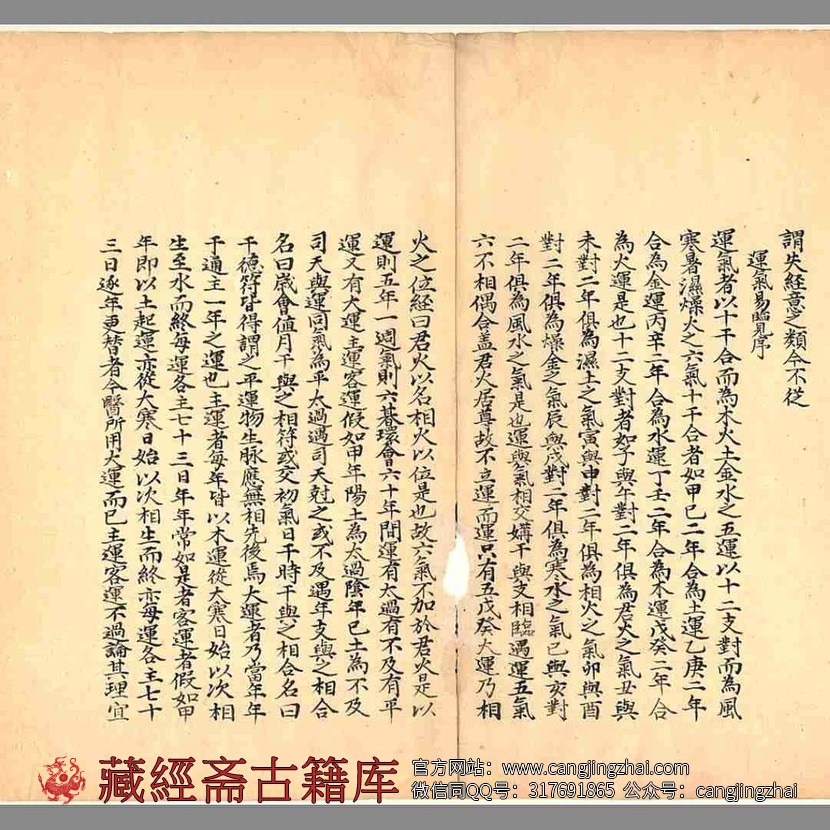 謂失經意之類今不從
運氣易覽序
運氣者以十干合而為木火土金水之五運以十二支對而為風
寒暑濕燥火之六氣十干合者如甲己二年合為土運乙庚二年
合為金運丙辛二年合為水運丁壬二年合為木運戊癸二年合
為火運是也十二支對者如子與午對二年俱為君火之氣丑與
未對二年俱為濕土之氣寅與申對二年俱為相火之氣卯與酉
對二年俱為燥金之氣辰與戌對二年俱為寒水之氣巳與亥對
二年俱為風木之氣是也運與氣相交媾干與支相臨遇運五氣
六不相偶合盖君火居尊故不立運而運只有五戊癸火運乃相
火之位經曰君火以名相火以位是也故六氣不加於君火是以
運則五年一週氣則六朞環會六十年間運有太過有不及有平
運又有大運主運客運假如甲年陽土為太過陰年己土為不及
司天與運同氣為平太過遇司天尅之或不及遇年支與之相合
名曰歲會値月干與之相符或交初氣日干時干與之相合名曰
干德符皆得謂之平運物生脉應無相先後焉大運者乃當年年
干通主一年之運也主運者每年皆以木運從大寒日始以次相
生至水而終每運各主七十三日年年常如是者客運者假如甲
年即以土起運亦從大寒日始以次相生而終亦每運各主七十
三日逐年更替者今醫所用大運而已主運客運不過論其理宜
藏經斋古籍库
官方网站：www.cangjingzhai.com
微信同QQ号：317691865 公众号：cangjingzhai